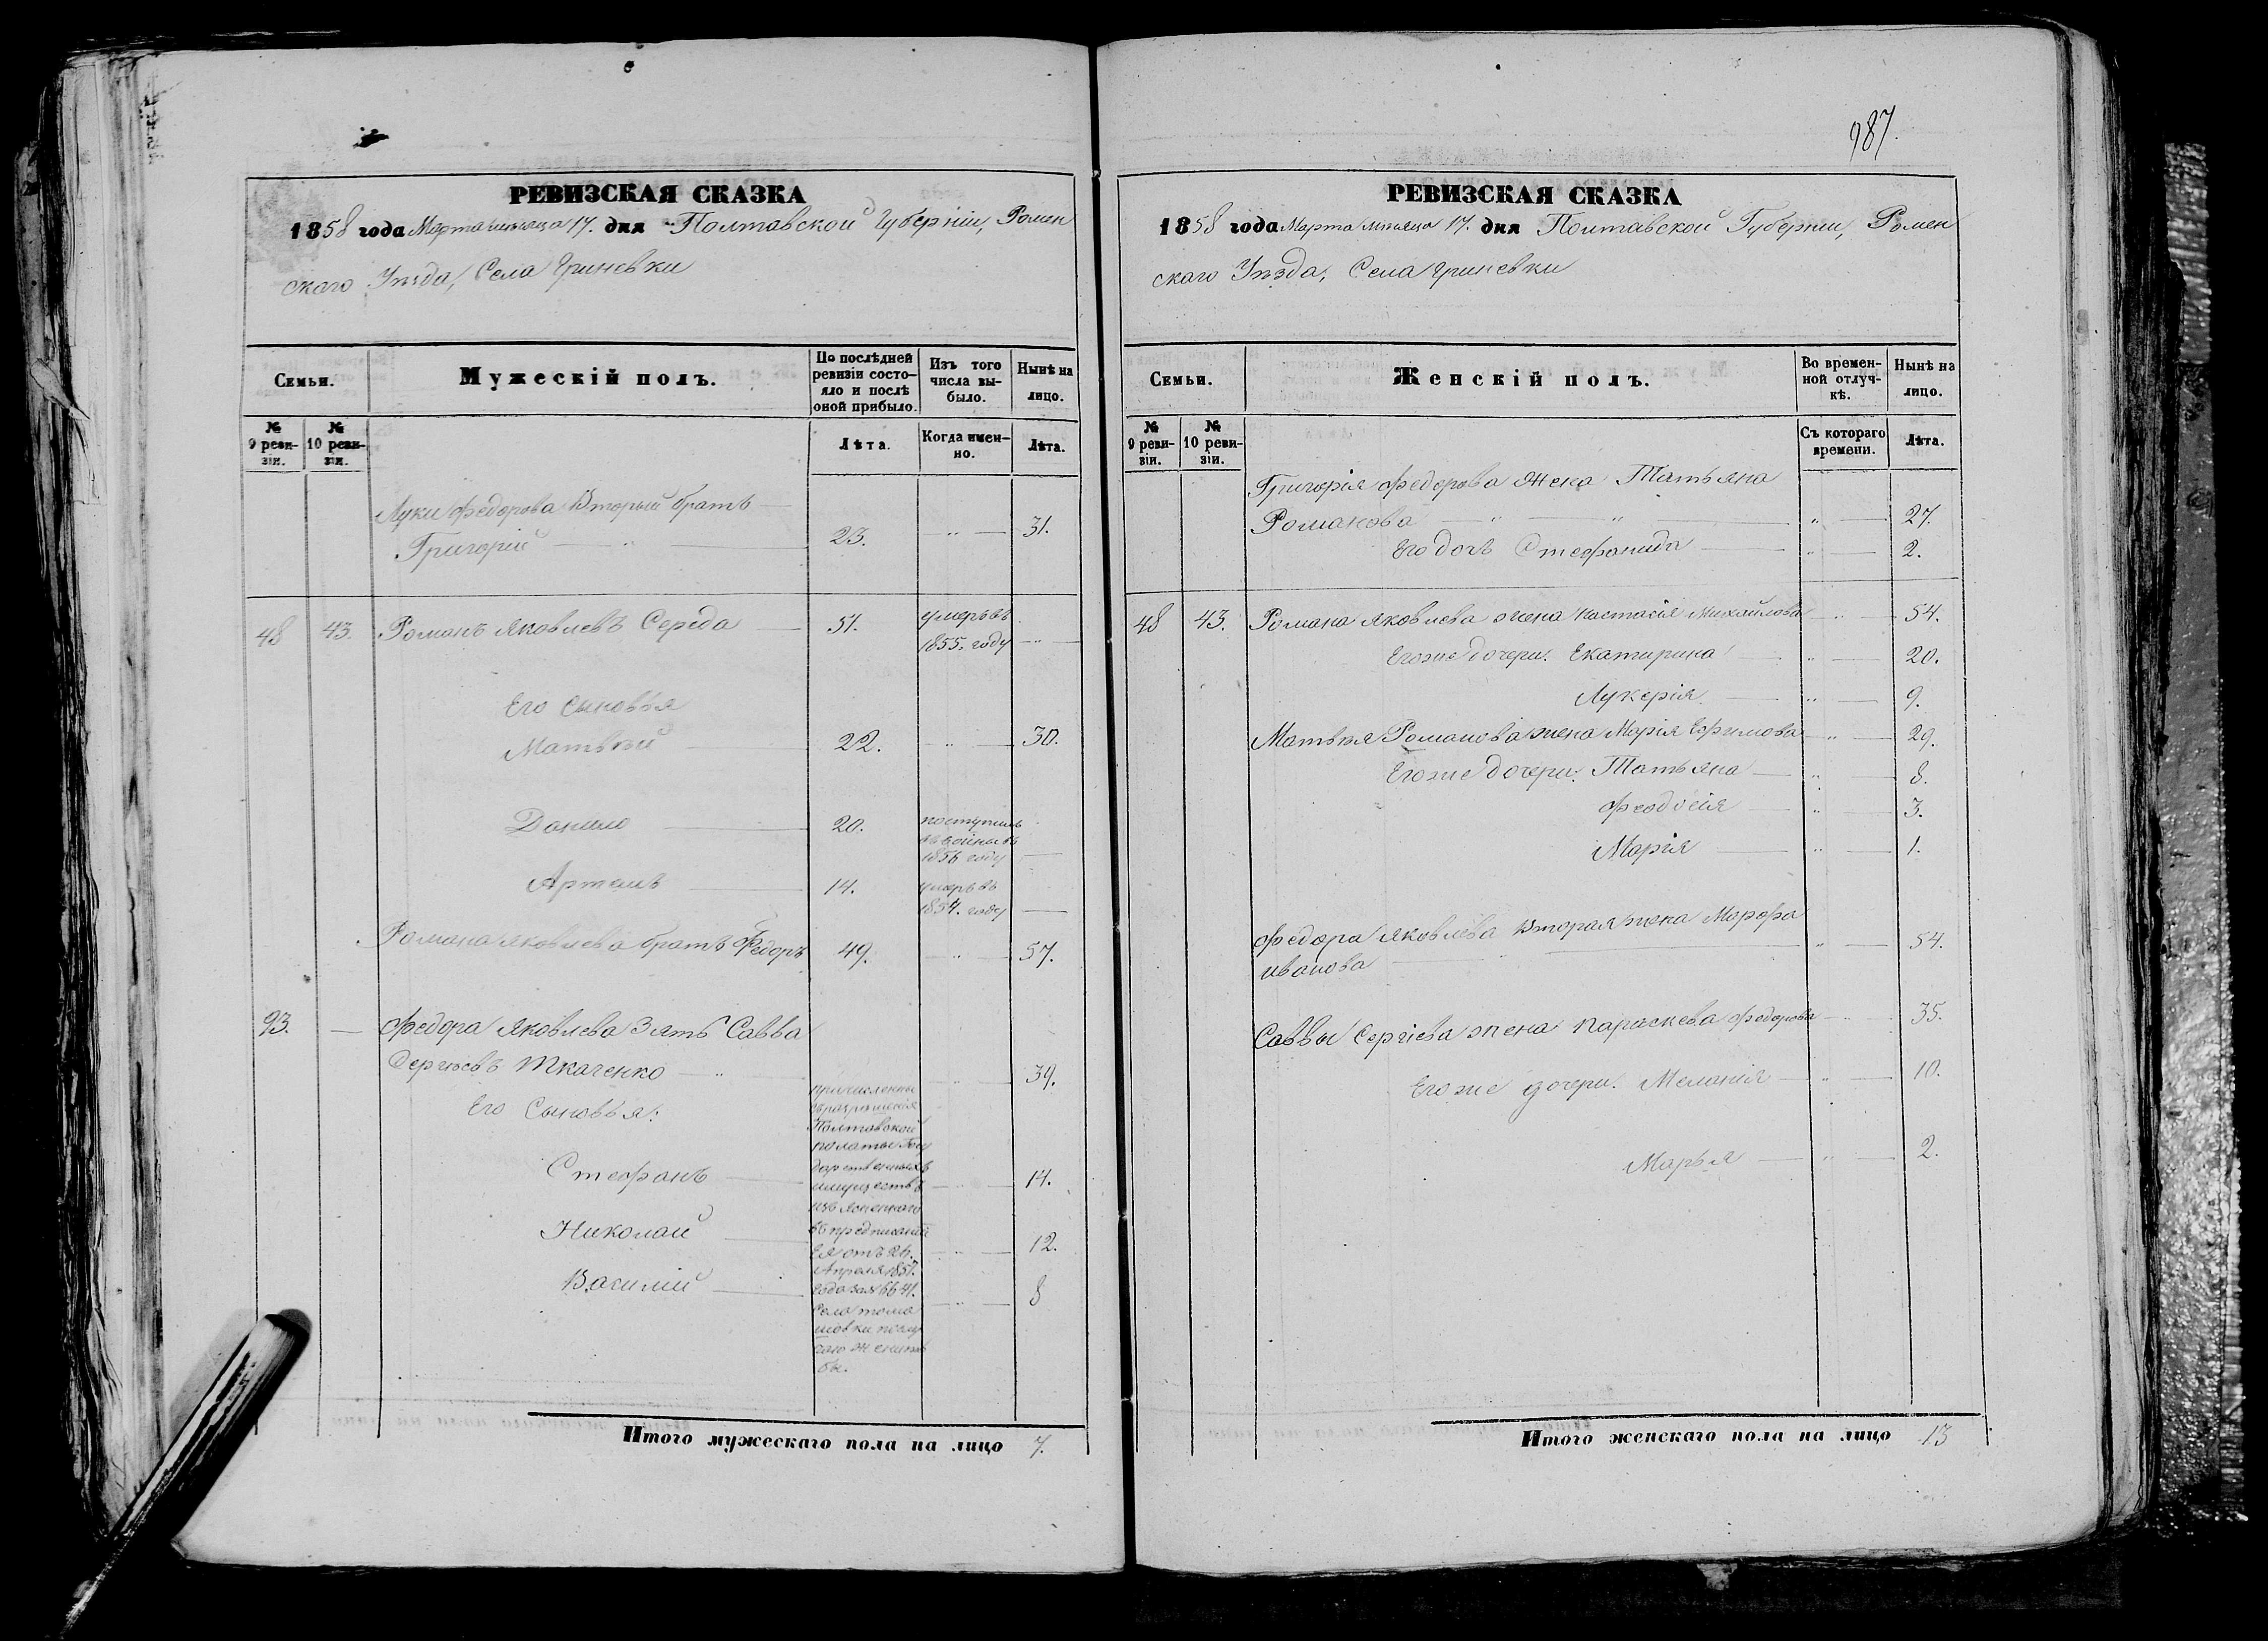 987.
РЕВИЗСКАЯ СКАЗКА
1858 года Марта мѣсяца 17. дня Полтавской Губерніи, Ромен
скаго Уѣзда, Села Гриневки
Семьи.
Мужескій полъ.
По послѣдней ревизіи состояло и послѣ оной прибыло.
Изъ того числа выбыло.
Нынѣ на лицо.
№ 9 ревизіи.
№ 10 ревизіи.
Лѣта.
Когда именно.
Лѣта.
Луки Федорова Вторый братъ
Григорій — „ — 23. — „ — 31.
48 43. Романъ Яковлевъ Середа — 51. умеръ въ
1855. году — „ —
Его Сыновья
Матвѣй — 22. — „ — 30.
Данило — 20. поступилъ
1854 году —
Артемъ — 14. умеръ въ
1854. году —
Романа Яковлева братъ Федоръ 49. — „ — 57.
93. — Федора Яковлева Зять Савва
Сергіевъ Ткаченко — „ — 39.
Его Сыновья:
причисленны
съ разрѣшенія
Полтавской
палаты Госу
дарственныхъ
имуществъ
Стефанъ — „ — 14.
въ предписаніи
Ея отъ 24.
Николай — „ — 12.
Апрѣля 1857.
года за №
Василій — „ — 8
Села тома
шовки по слу
чаю женить
бы.
Итого мужескаго пола на лицо 7.
РЕВИЗСКАЯ СКАЗКА
1858 года Марта мѣсяца 17. дня Полтавской Губерніи, Ромен
скаго Уѣзда, Села Гриневки
Семьи.
Женскій полъ.
Во временной отлучкѣ.
Нынѣ на лицо.
№ 9 ревизіи.
№ 10 ревизіи.
Съ котораго времени.
Лѣта.
Григорія Федорова жена Татьяна
Романова — „ — „ — „ — 27.
Его дочь Стефанида — „ — 2.
48 43. Романа Яковлева жена Настасія Михайлова — „ — 54.
Его же дочери: Екатирина — „ — 20.
Лукерія — „ — 9.
Матвѣя Романова жена Марія Ефимова — „ — 29.
Его же дочери: Татьяна — „ — 8.
Феодосія — „ — 3.
Марія — „ — 1.
Федора Яковлева Вторая жена Марфа
Иванова — „ — 54.
Саввы Сергіева жена Параскева Федорова — „ — 35.
Его же дочери: Меланія — „ — 10.
Марья — „ — 2.
Итого женскаго пола на лицо 13